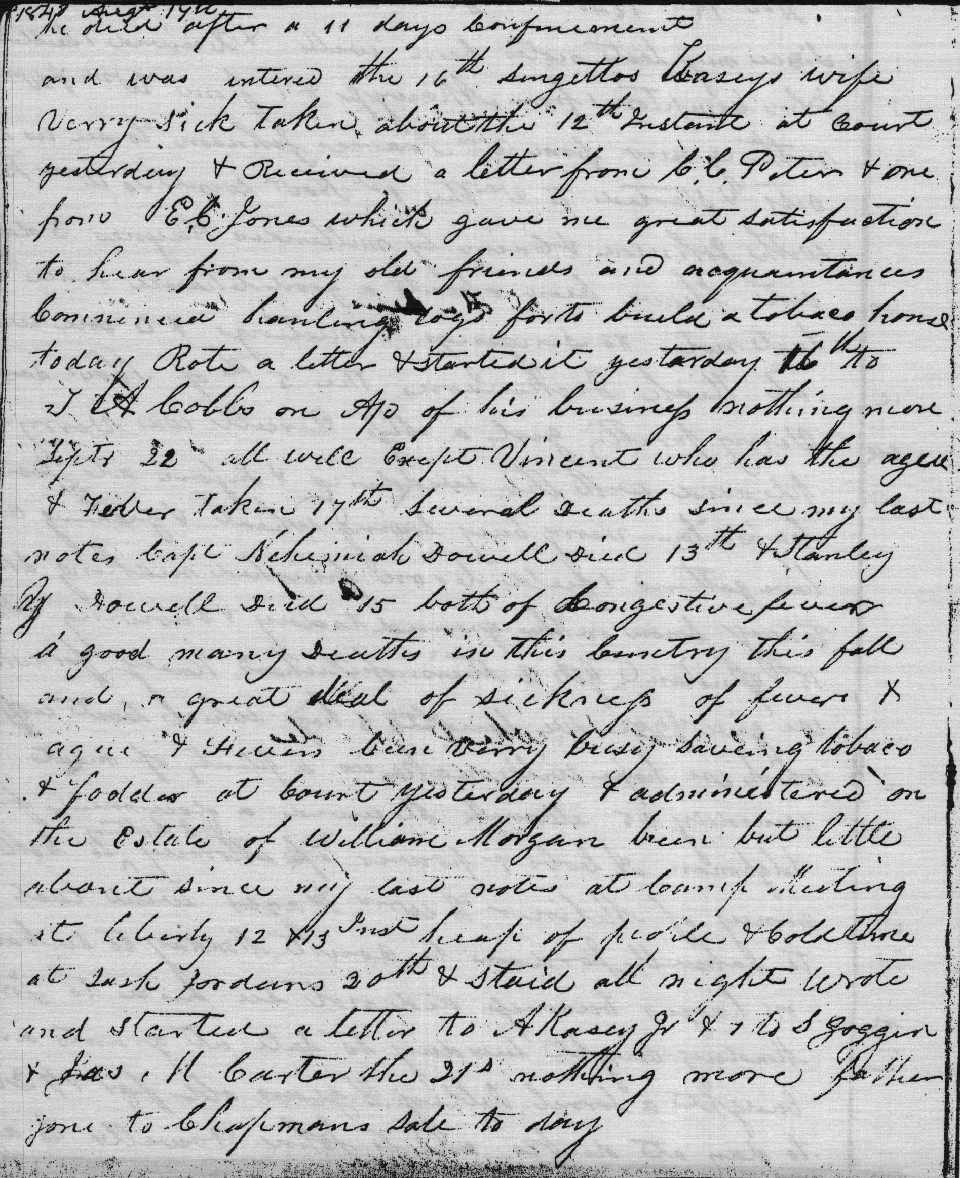 1848 Augt 17th
he died after a 11 days Confinement
and was intered the 16th Singettos Kaseys wife
Verry Sick taken about the 12th Instant at Court
yesterdiy & Received a letter from C. C. Peter & one
from E, C Jones which gave me great satisfaction
to hear from my old friends and acquaintances
Commincd hauling logs forto build a tobaco house
today Rote a letter & started it yestarday 16th to
J A Cobbs on A/o of his business nothing more
Septr 22 all well Except Vincent who has the ague
& Fever taken 17th Several Deaths since my last
notes Capt Nehemiah Dowell Died 13th & Stanley
Dowell Died 15 both of Congestive fever
a good many Deaths in this Cuntry this fall
and a great deal of sickness of fever &
ague & Fevers been verry busy saveing tobaco
& fodder at Court yesterday & administered on
the Estate of William Morgan been but little
about since my last notes at Camp Meeting
at liberty 12 & 13 Inst heap of people & Cold time
at Jordans 20th & staid all night wrote
and started a letter to A Kasey Jr & 1 to S Goggin
& Jas. M Carter the 21st nothing more father
gone to Chapmans Sale to day